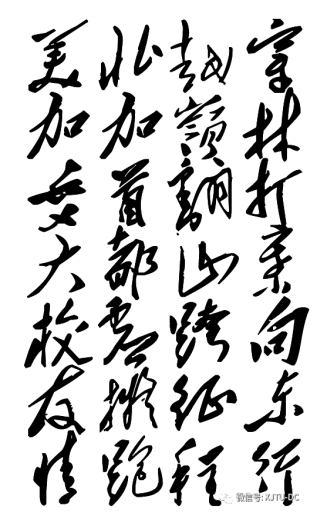 穿林打葉向东行
越嶺翻山跨征程
北加首都虚擬跑
美加交大校友情
微信号: XJTU-DC